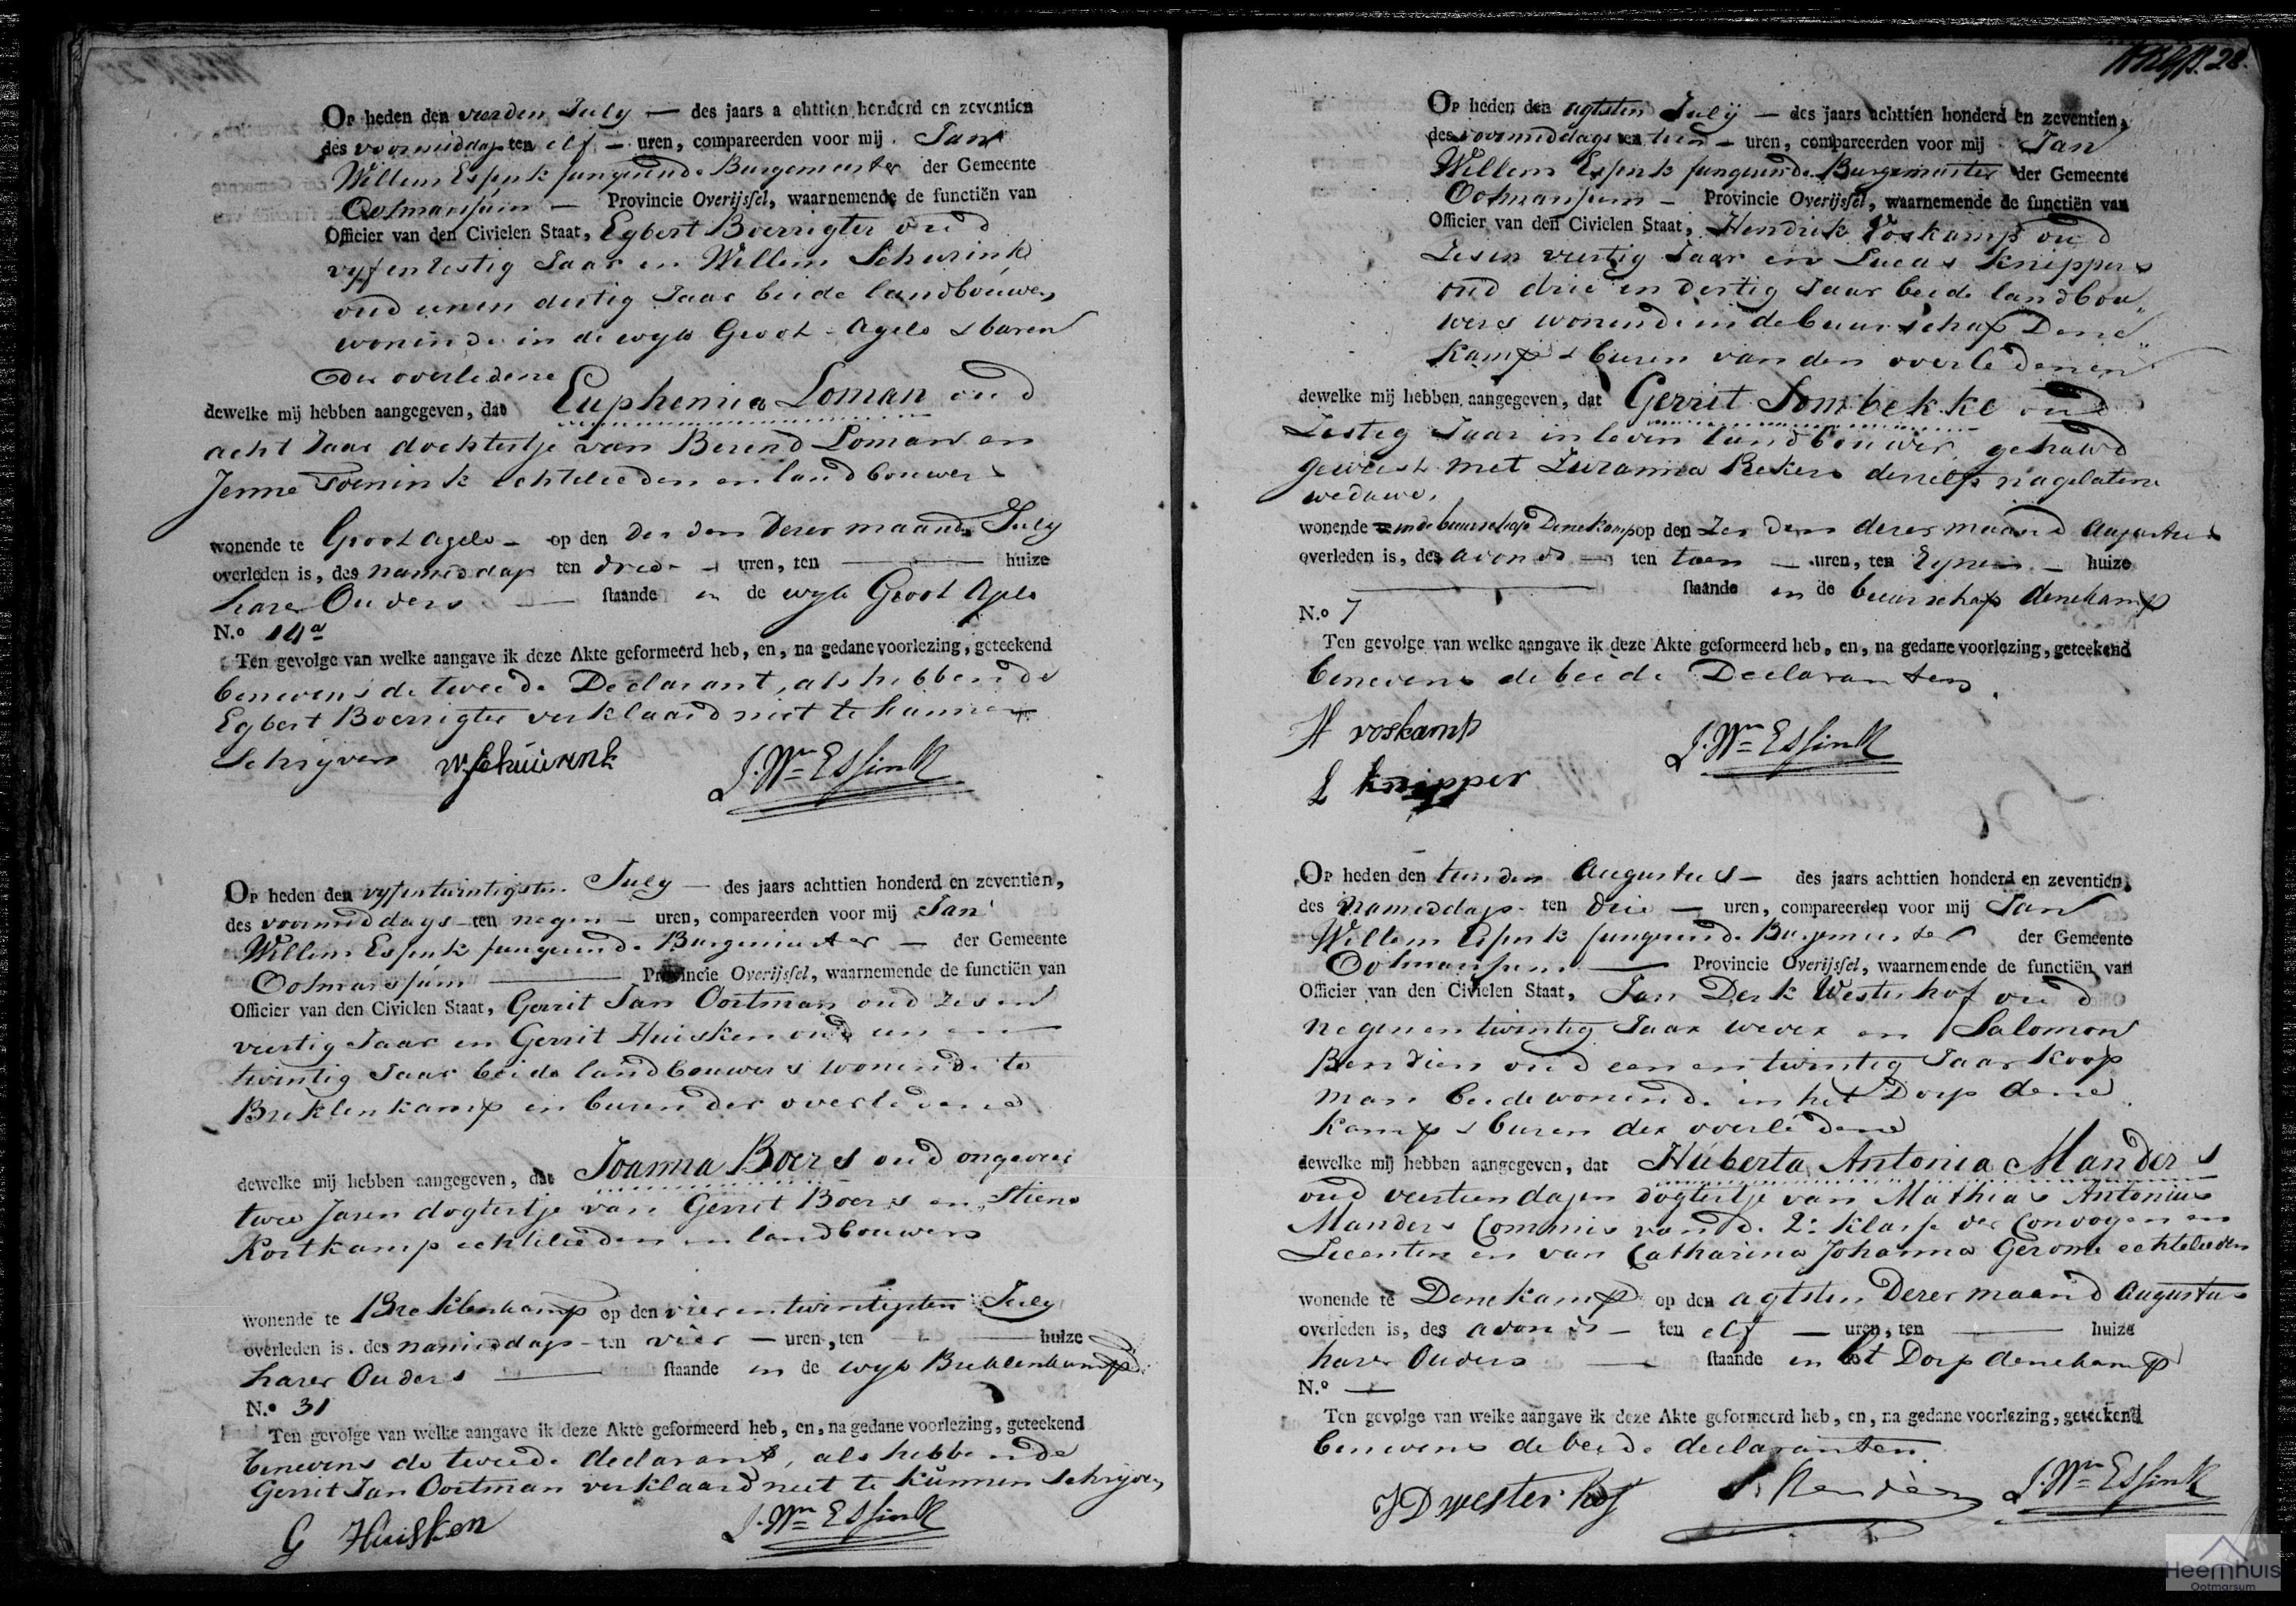 Op heden den vierden July — des jaars a chttien honderd en zeventien
des voormiddags ten elf — uren, compareerden voor mij Jan
Willem Essink fungeerende Burgemeester der Gemeente
Ootmarsum — Provincie Overijssel, waarnemende de functiën van
Officier van den Civielen Staat, Egbert Boerrigter oud
vyfenzestig Jaar en Willem Schurink
oud eenen dertig Jaar beide landbouwers
wonende in de wyk Groot-Agelo & buren
der overledene
dewelke mij hebben aangegeven, dat Euphemia Loman oud
acht Jaar dochtertje van Berend Loman en
Jenne Toenink echtelieden en landbouwers
wonende te Groot Agelo — op den derden dezer maand July
overleden is, des namiddags ten drie — uren, ten — huize
harer Ouders — staande in de wyk Groot Agelo
N.o 14a
Ten gevolge van welke aangave ik deze Akte geformeerd heb, en, na gedane voorlezing, geteekend
benevens de tweede Declarant, als hebbende
Egbert Boerrigter verklaard niet te kunnen
Schryven W Schuirink J. Wm Essink
Op heden den vyfentwintigsten July — des jaars achttien honderd en zeventien,
des voormiddags ten negen — uren, compareerden voor mij Jan
Willem Essink fungeerende Burgemeester — der Gemeente
Ootmarssum — Provincie Overijssel, waarnemende de functiën van
Officier van den Civielen Staat, Gerrit Jan Oortman oud zes en
veertig Jaar en Gerrit Huisken oud een en
twintig Jaar beide landbouwers wonende te
Breklenkamp en buren der overledene
dewelke mij hebben aangegeven, dat Joanna Boers oud ongeveer
twee Jaren dogtertje van Gerrit Boers en Stiene
Kortkamp echtelieden en landbouwers
wonende te Breklenkamp op den vierentwintigsten July
overleden is, des namiddags ten vier — uren, ten — huize
harer Ouders — staande in de wyk Breklenkamp
N.o 31
Ten gevolge van welke aangave ik deze Akte geformeerd heb, en, na gedane voorlezing, geteekend
benevens de tweede declarant, als hebbende
Gerrit Jan Oortman verklaard niet te kunnen schryven
G Huisken J. Wm Essink
28.
Op heden den agtsten July — des jaars achttien honderd en zeventien,
des voormiddags ten tien — uren, compareerden voor mij Jan
Willem Essink fungeerende Burgemeester der Gemeente
Ootmarsum — Provincie Overijssel, waarnemende de functiën van
Officier van den Civielen Staat, Hendrik Voskamp oud
Zesen veertig Jaar en Lucas Knippers
oud drie en dertig Jaar beide landbou„
wers wonende in de buurschap Dene„
kamp & buren van den overledenen
dewelke mij hebben aangegeven, dat Gerrit Sombekke oud
Zestig Jaar in leven landbouwer, gehuwd
geweest met Zuzanna Rekers deszelfs nagelatene
weduwe.
wonende in de buurschap Denekamp op den zesden dezer maand Augustus
overleden is, des avonds — ten tien — uren, ten Zynen — huize
— staande in de buurschap denekamp
N.o 7
Ten gevolge van welke aangave ik deze Akte geformeerd heb, en, na gedane voorlezing, geteekend
benevens de beide Declaranten.
H voskamp J. Wm Essink
L knipper
Op heden den tienden Augustus — des jaars achttien honderd en zeventien,
des Namiddags ten drie — uren, compareerden voor mij Jan
Willem Essink fungeerende Burgemeester der Gemeente
Ootmarssum — Provincie Overijssel, waarnemende de functiën van
Officier van den Civielen Staat, Jan Derk Westerhof oud
negenentwintig Jaar wever en Salomon
Bendien oud een en twintig Jaar koop
man beide wonende in het Dorp dene
kamp & buren der overledene
dewelke mij hebben aangegeven, dat Huberta Antonia Manders
oud veertien dagen dogtertje van Mathias Antonius
Manders Commies van de 2e klasse der Convoyen en
Licenten en van Catharina Johanna Gerome echtelieden
wonende te Denekamp op den agtsten Dezer maand Augustus
overleden is, des avonds — ten elf — uren, ten — huize
harer Ouders — staande in het Dorp denekamp
N.o —
Ten gevolge van welke aangave ik deze Akte geformeerd heb, en, na gedane voorlezing, geteekend
benevens de beide declaranten.
JD westerhof S. Bendien J. Wm Essink
Heemhuis
Ootmarsum